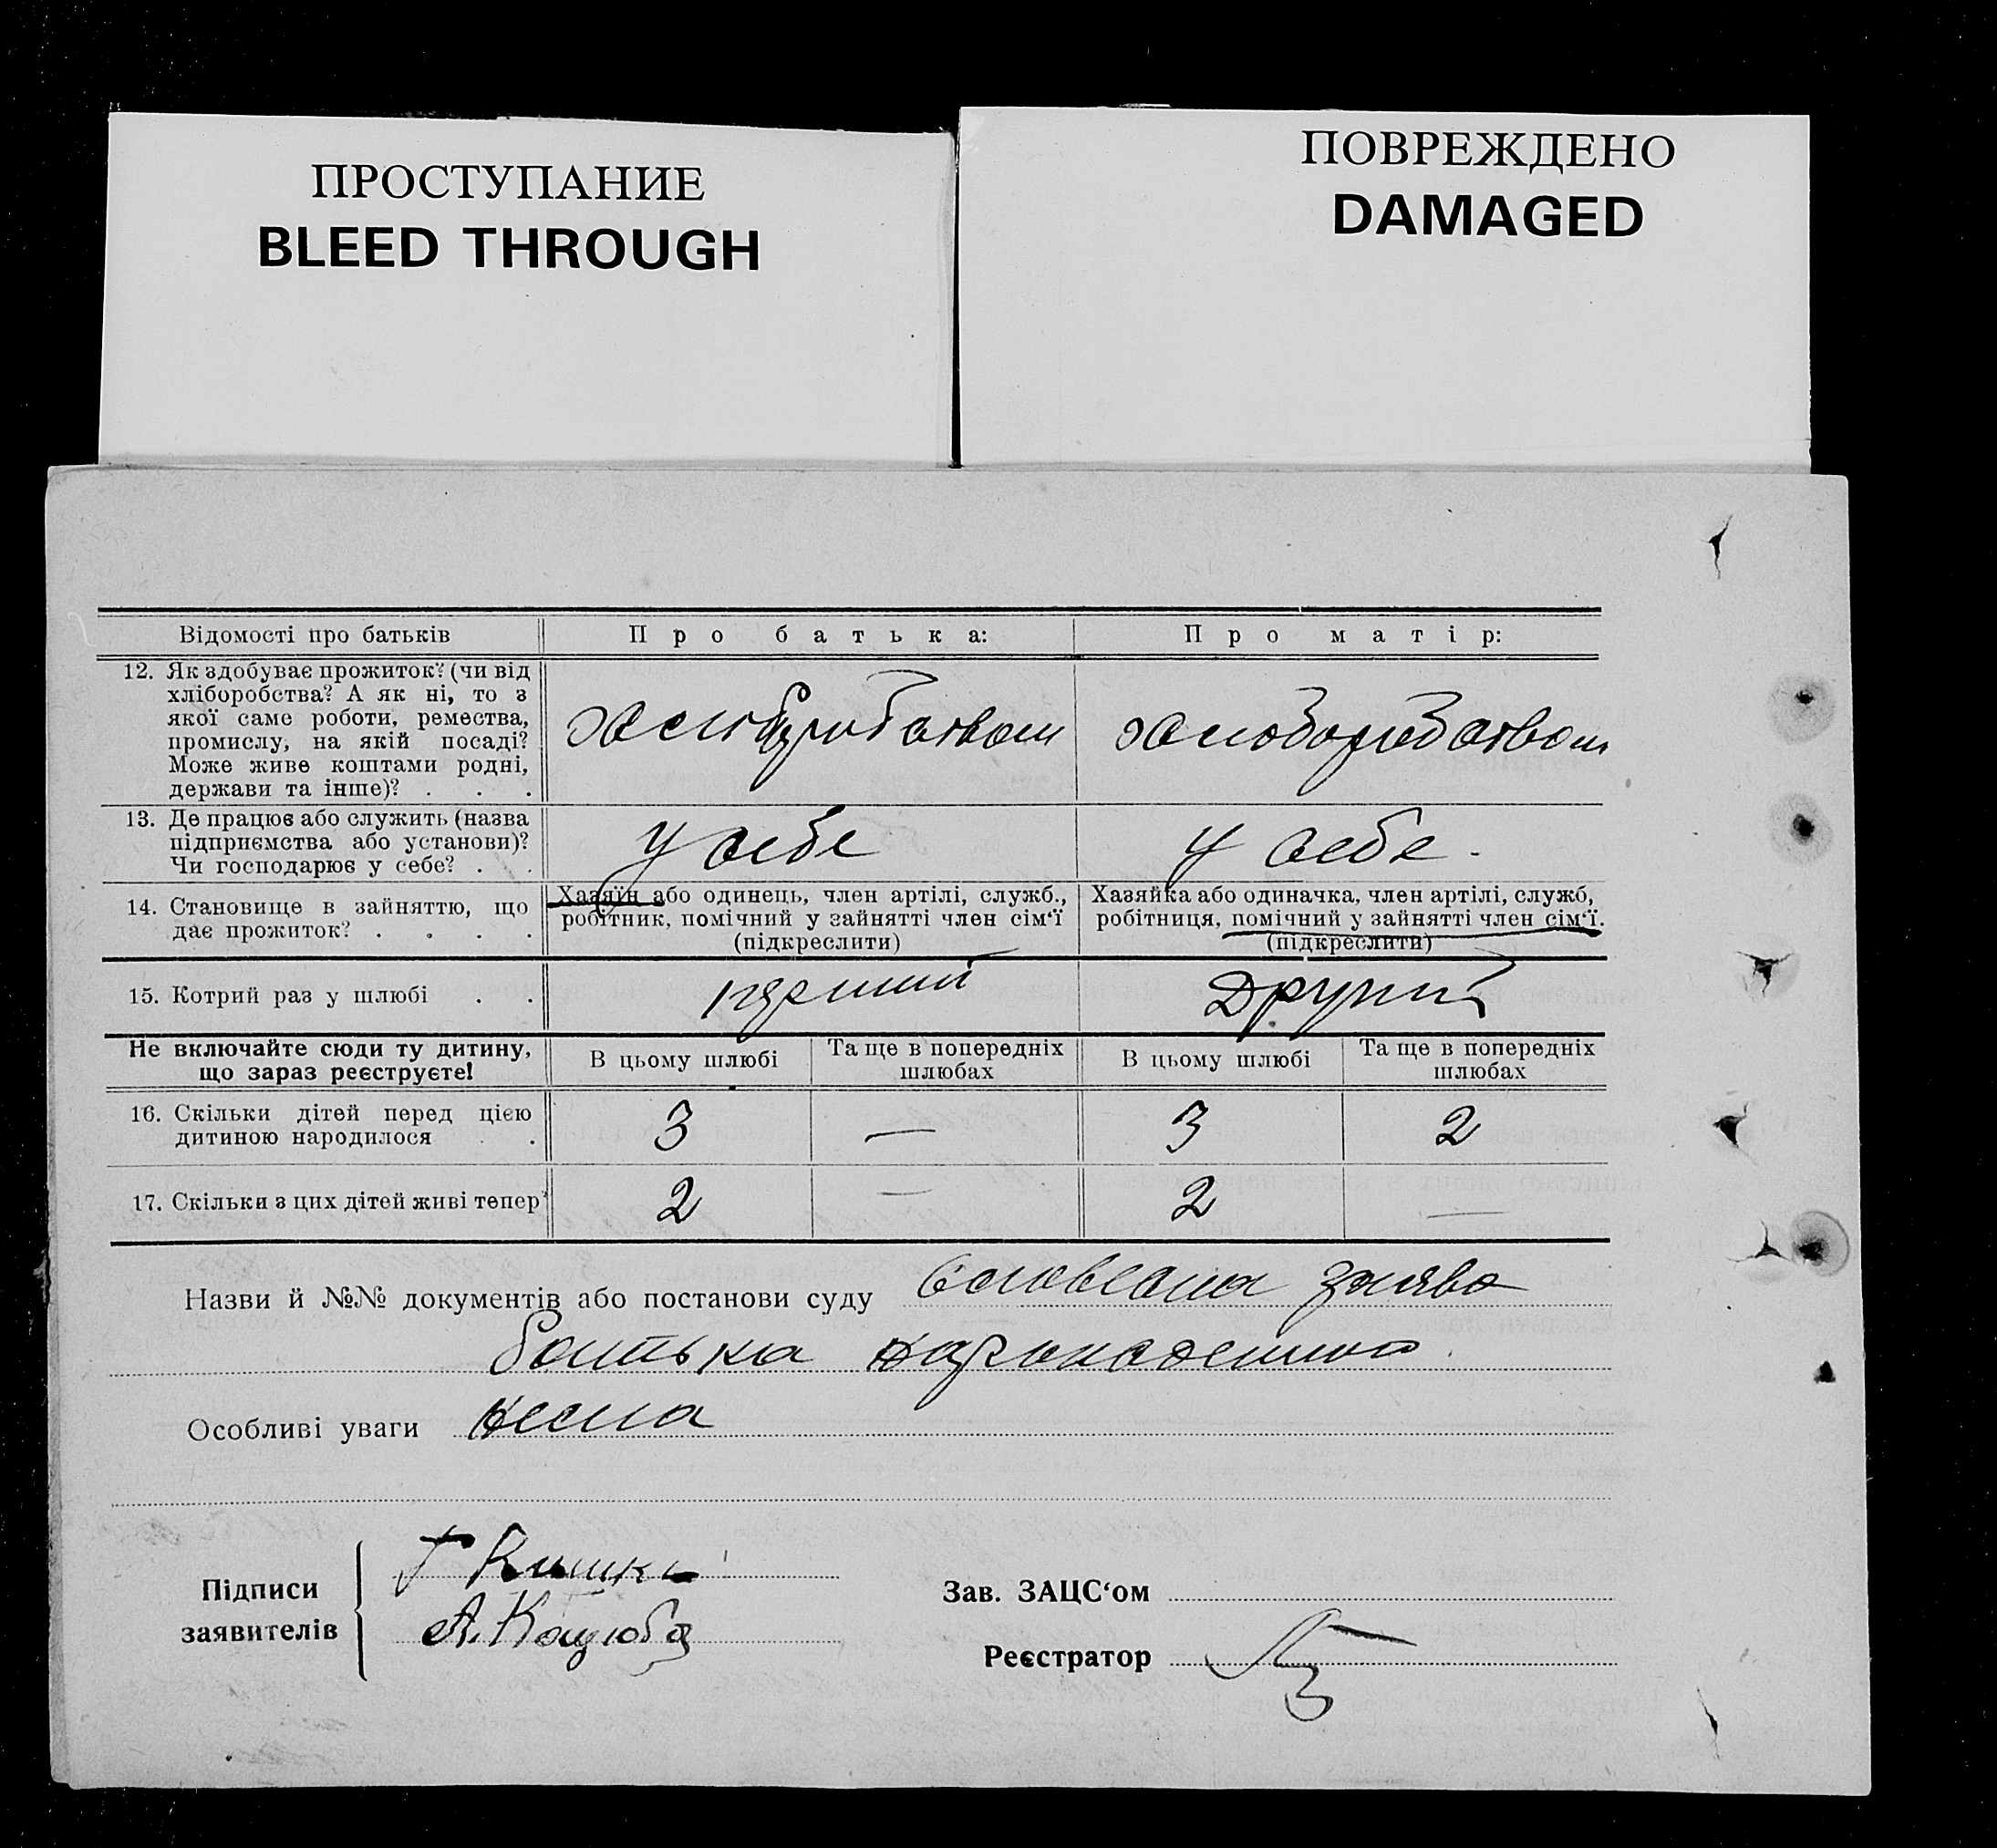 ПРОСТУПАНИЕ
BLEED THROUGH
ПОВРЕЖДЕНО
DAMAGED
Відомості про батьків
Про батька:
Про матір:
12. Як здобуває прожиток? (чи від
хліборобства? А як ні, то з
якої саме роботи, ремества,
промислу, на якій посаді?
Може живе коштами родні,
держави та інше)? . . .
хліборобством
хліборобством
13. Де працює або служить (назва
підприємства або установи)?
Чи господарює у себе? . .
у себе
у себе.
14. Становище в зайняттю, що
дає прожиток? . . . .
Хазяїн або одинець, член артілі, служб.,
робітник, помічний у зайнятті член сім‘ї
(підкреслити)
Хазяйка або одиначка, член артілі, служб,
робітниця, помічний у зайнятті член сім‘ї.
(підкреслити)
15. Котрий раз у шлюбі . .
перший
Другий
Не включайте сюди ту дитину,
що зараз реєструєте!
В цьому шлюбі
Та ще в попередніх
шлюбах
В цьому шлюбі
Та ще в попередніх
шлюбах
16. Скільки дітей перед цією
дитиною народилося .
3
—
3
2
17. Скільки з цих дітей живі тепер?
2
—
2
—
Назви й №№ документів або постанови суду словесна заява
батька
Особливі уваги нема
Підписи
заявителів
А. Коцюба
Зав. ЗАЦС‘ом
Реєстратор